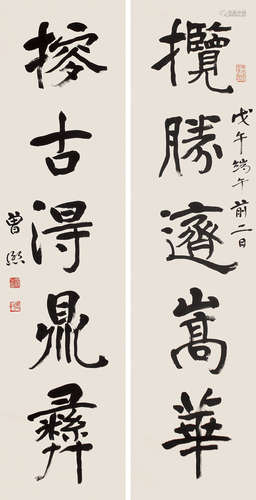 攬勝躋嵩華
戊午端午前二日
搜古得鼎彝
曾熙